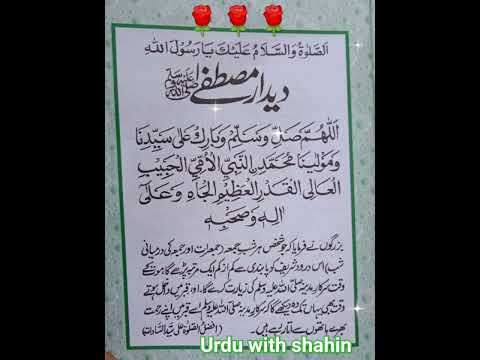 اَلصَّلٰوةُ وَالسَّلَامُ عَلَيْكَ يَا رَسُوْلَ اللهِ
دیدارِ مصطفےٰ ﷺ
اَللّٰهُمَّ صَلِّ وَسَلِّمْ وَبَارِكْ عَلٰى سَيِّدِنَا
وَمَوْلٰينَا مُحَمَّدِنِ النَّبِيِّ الْاُمِّيِّ الْحَبِيْبِ
الْعَالِى الْقَدْرِ الْعَظِيْمِ الْجَاهِ وَعَلٰى
اٰلِهٖ وَصَحْبِهٖ
بزرگوں نے فرمایا کہ جو شخص ہر شبِ جمعہ (جمعرات اور جمعہ کی درمیانی
شب) اس درود شریف کو پابندی سے کم از کم ایک مرتبہ پڑھے گا موت کے
وقت سرکارِ مدینہ صلی اللہ علیہ وسلم کی زیارت کرے گا۔ اور قبر میں داخل ہوتے
وقت بھی یہاں تک کہ وہ دیکھے گا کہ سرکارِ مدینہ صلی اللہ علیہ وسلم اسے قبر میں اپنے رحمت
بھرے ہاتھوں سے اتار رہے ہیں۔ (افضل الصلوٰۃ علی سید السادات)
Urdu with shahin